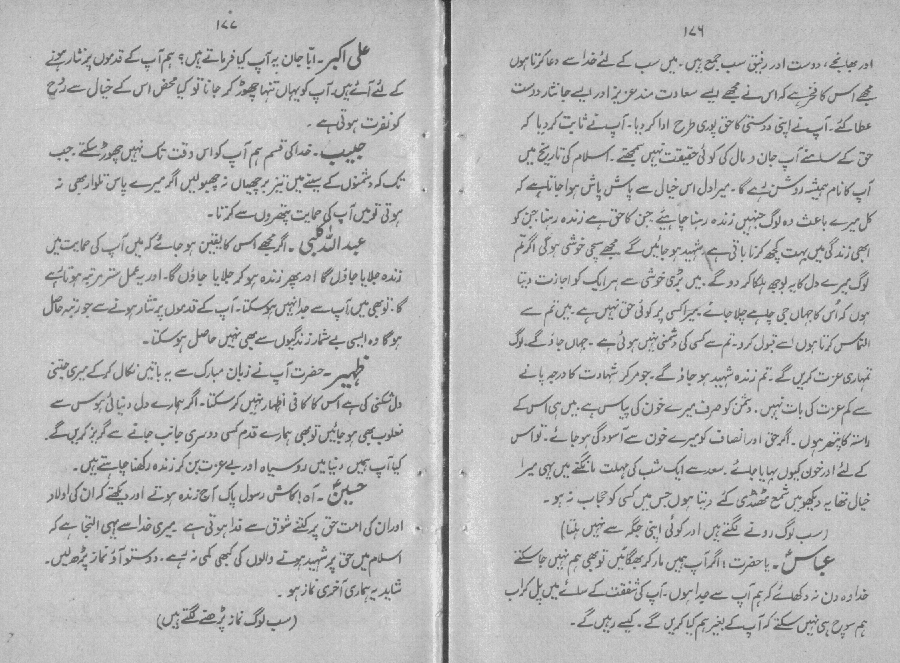 ۱۷۶
اور بھانجے، دوست اور رفیق سب جمع ہیں۔ میں سب کے لئے خدا سے دعا کرتا ہوں
مجھے اس کا فخر ہے کہ اس نے مجھے ایسے سعادت مند عزیز اور ایسے جانثار دوست
عطا کئے۔ آپ نے اپنی دوستی کا حق پوری طرح ادا کر دیا۔ آپ نے ثابت کر دیا کہ
حق کے سامنے آپ جان و مال کی کوئی حقیقت نہیں سمجھتے۔ اسلام کی تاریخ میں
آپ کا نام ہمیشہ روشن رہے گا۔ میرا دل اس خیال سے پاش پاش ہوا جاتا ہے کہ
کل میرے باعث وہ لوگ جنہیں زندہ رہنا چاہیئے جن کا حق ہے زندہ رہنا جن کو
ابھی زندگی میں بہت کچھ کرنا باقی ہے شہید ہو جائیں گے مجھے سچی خوشی ہوگی اگر تم
لوگ میرے دل کا یہ بوجھ ہلکا کر دو گے۔ میں بڑی خوشی سے ہر ایک کو اجازت دیتا
ہوں کہ اُس کا جہاں جی چاہے چلا جائے میرا کسی پر کوئی حق نہیں ہے۔ میں تم سے
التماس کرتا ہوں اسے قبول کرو۔ تم سے کسی کی دشمنی نہیں ہوئی ہے۔ جہاں جاؤ گے۔ لوگ
تمہاری عزت کریں گے۔ تم زندہ شہید ہو جاؤ گے۔ جو مر کر شہادت کا درجہ پانے
سے کم عزت کی بات نہیں۔ دشمن کو صرف میرے خون کی پیاس ہے۔ میں ہی اس کے
راستہ کا پتھر ہوں۔ اگر حق اور انصاف کو میرے خون سے آسودگی ہو جائے۔ تو اس
کے لئے اور خون کیوں بہایا جائے۔ سعد سے ایک شب کی مہلت مانگنے میں یہی میرا
خیال تھا یہ دیکھو میں شمع ٹھنڈی کئے دیتا ہوں جس میں کسی کو حجاب نہ ہو۔
(سب لوگ رونے لگتے ہیں اور کوئی اپنی جگہ سے نہیں ہلتا)
عباسؑ۔ یا حضرت! اگر آپ ہمیں مار کر بھگائیں تو بھی ہم نہیں جا سکتے
خدا وہ دن نہ دکھائے کہ ہم آپ سے جدا ہوں۔ آپ کی شفقت کے سائے میں پل کر اب
ہم سوچ ہی نہیں سکتے کہ آپ کے بغیر ہم کیا کریں گے۔ کیسے رہیں گے۔
۱۷۷
علی اکبر۔ ابّا جان یہ آپ کیا فرماتے ہیں؟ ہم آپ کے قدموں پر نثار ہونے
کے لئے آئے ہیں۔ آپ کو یہاں تنہا چھوڑ کر جانا تو کیا محض اس کے خیال سے رُوح
کو نفرت ہوتی ہے۔
حبیب۔ خدا کی قسم ہم آپ کو اس وقت تک نہیں چھوڑ سکتے۔ جب
تک کہ دشمنوں کے سینے میں تیز برچھیاں نہ چبھو لیں اگر میرے پاس تلوار بھی نہ
ہوتی تو میں آپ کی حمایت پتھروں سے کرتا۔
عبداللہ کلبی۔ اگر مجھے اس کا یقین ہو جائے کہ میں آپ کی حمایت میں
زندہ جلایا جاؤں گا اور پھر زندہ ہو کر جلایا جاؤں گا۔ اور یہ عمل ستر مرتبہ ہوتا رہے
گا۔ تو بھی میں آپ سے جدا نہیں ہو سکتا۔ آپ کے قدموں پر نثار ہونے سے جو رتبہ حاصل
ہوگا وہ ایسی بے شمار زندگیوں سے بھی نہیں حاصل ہو سکتا۔
ظہیر۔ حضرت آپ نے زبان مبارک سے یہ باتیں نکال کر کے میری جتنی
دل شکنی کی ہے اس کا کافی اظہار نہیں کر سکتا۔ اگر ہمارے دل دنیائی ہوس سے
مغلوب بھی ہو جائیں تو بھی ہمارے قدم کسی دوسری جانب جانے سے گریز کریں گے۔
کیا آپ ہمیں دنیا میں روسیاہ اور بے عزت بن کر زندہ رکھنا چاہتے ہیں۔
حسینؑ۔ آہ! کاش رسول پاک آج زندہ ہوتے اور دیکھتے کہ ان کی اولاد
اور ان کی امت حق پر کتنے شوق سے فدا ہوتی ہے۔ میری خدا سے یہی التجا ہے کہ
اسلام میں حق پر شہید ہونے والوں کی کبھی کمی نہ رہے۔ دوستو آؤ نماز پڑھ لیں۔
شاید یہ ہماری آخری نماز ہو۔
(سب لوگ نماز پڑھنے لگتے ہیں)